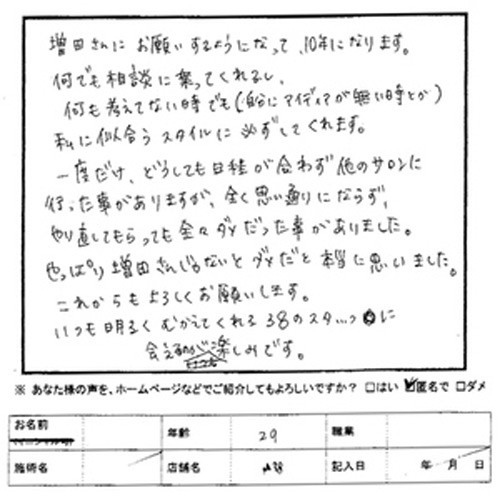 増田さんに お願いするようになって、10年になります。
何でも相談に乗ってくれるし、
何も考えてない時でも( にアイディアが無い時とか)
私に似合うスタイルに必ずしてくれます。
一度だけ、どうしても日程が合わず他のサロンに
行った事がありますが、全く思い通りにならず、
やり直してもらっても全々ダメだった事がありました。
やっぱり増田さんじゃないとダメだと本当に思いました。
これからもよろしくお願いします。
いつも明るくむかえてくれる38のスタッフに
会えるのが楽しみです。
※ あなた様の声を、ホームページなどでご紹介してもよろしいですか? □はい ☑匿名で □ダメ
お名前 年齢 29 職業
施術名 店舗名 記入日 年 月 日